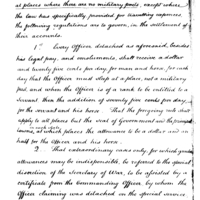 at places where there are no military posts, except where
the law has specifically provided for travelling expenses,
the following regulations are to govern, in the settlement of
their accounts.
1st Every Officer detached as aforesaid, besides
his legal pay, and emoluments, shall receive a dollar
and twenty five cents per day, for man and horse, for each
day that the Officer must sleep at a place, not a military
post, and when the Officer is of a rank to be entitled to a
servant then the addition of seventy five cents per day,
for the servant and his horse. That the foregoing rule shall
apply to all places but the seat of Government and the principal
towns, at which places the allowance to be a dollar and a
half for the Officer and his horse.
2. That extraordinary cases only, for which good
allowances may be indispensible, be referred to the special
discretion of the Secretary of War, to be afforded by a
certificate from the Commanding Officer, by whom the Officer
claiming was detached on the special service